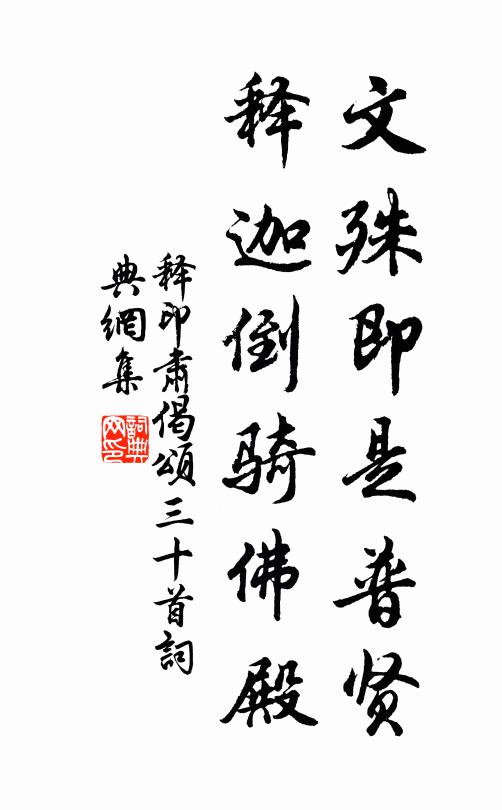 文殊即是普贤
释迦倒骑佛殿
释印肃偈頌三十首詞
典網集
詞典
网印